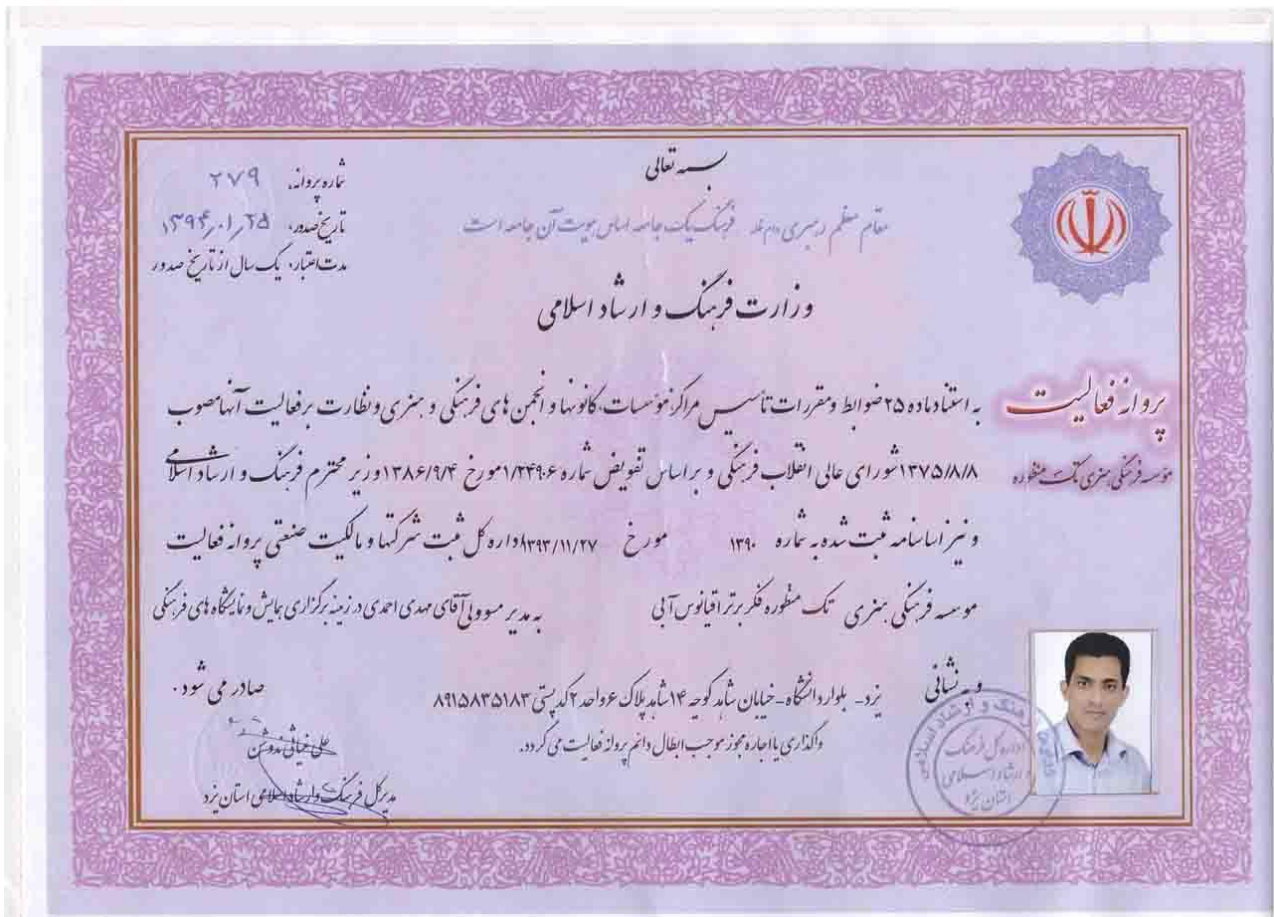 بسمه تعالی
شماره پروانه، ۲۷۹
تاریخ صدور، ۱۳۹۴٫۰۱٫۲۵
مدت اعتبار، یک سال از تاریخ صدور
مقام معظم رهبری فرهنگ یک جامعه اساس هویت آن جامعه است
وزارت فرهنگ و ارشاد اسلامی
پروانه فعالیت
موسسه فرهنگی هنری تک منظوره
به استناد ماده ۲۵ ضوابط و مقررات تأسیس مراکز، مؤسسات، کانونها و انجمن های فرهنگی و هنری و نظارت بر فعالیت آنها مصوب
۱۳۷۵/۸/۸ شورای عالی انقلاب فرهنگی و بر اساس تفویض شماره ۱/۲۴۹۰۶ مورخ ۱۳۸۶/۹/۴ وزیر محترم فرهنگ و ارشاد اسلامی
و نیز اساسنامه ثبت شده به شماره ۱۳۹۰ مورخ ۱۳۹۳/۱۱/۲۷ اداره کل ثبت شرکتها و مالکیت صنعتی پروانه فعالیت
موسسه فرهنگی هنری تک منظوره فکر برتر اقیانوس آبی به مدیر مسوولی آقای مهدی احمدی در زمینه برگزاری همایش و نمایشگاه های فرهنگی
و به نشانی یزد - بلوار دانشگاه - خیابان شاهد کوچه ۱۴ شاهد پلاک ۶ واحد ۲ کد پستی ۸۹۱۵۸۳۵۱۸۳ صادر می شود.
واگذاری یا اجاره مجوز موجب ابطال دائم پروانه فعالیت می گردد.
مدیرکل فرهنگ و ارشاد اسلامی استان یزد
اداره کل فرهنگ
و ارشاد اسلامی
استان یزد